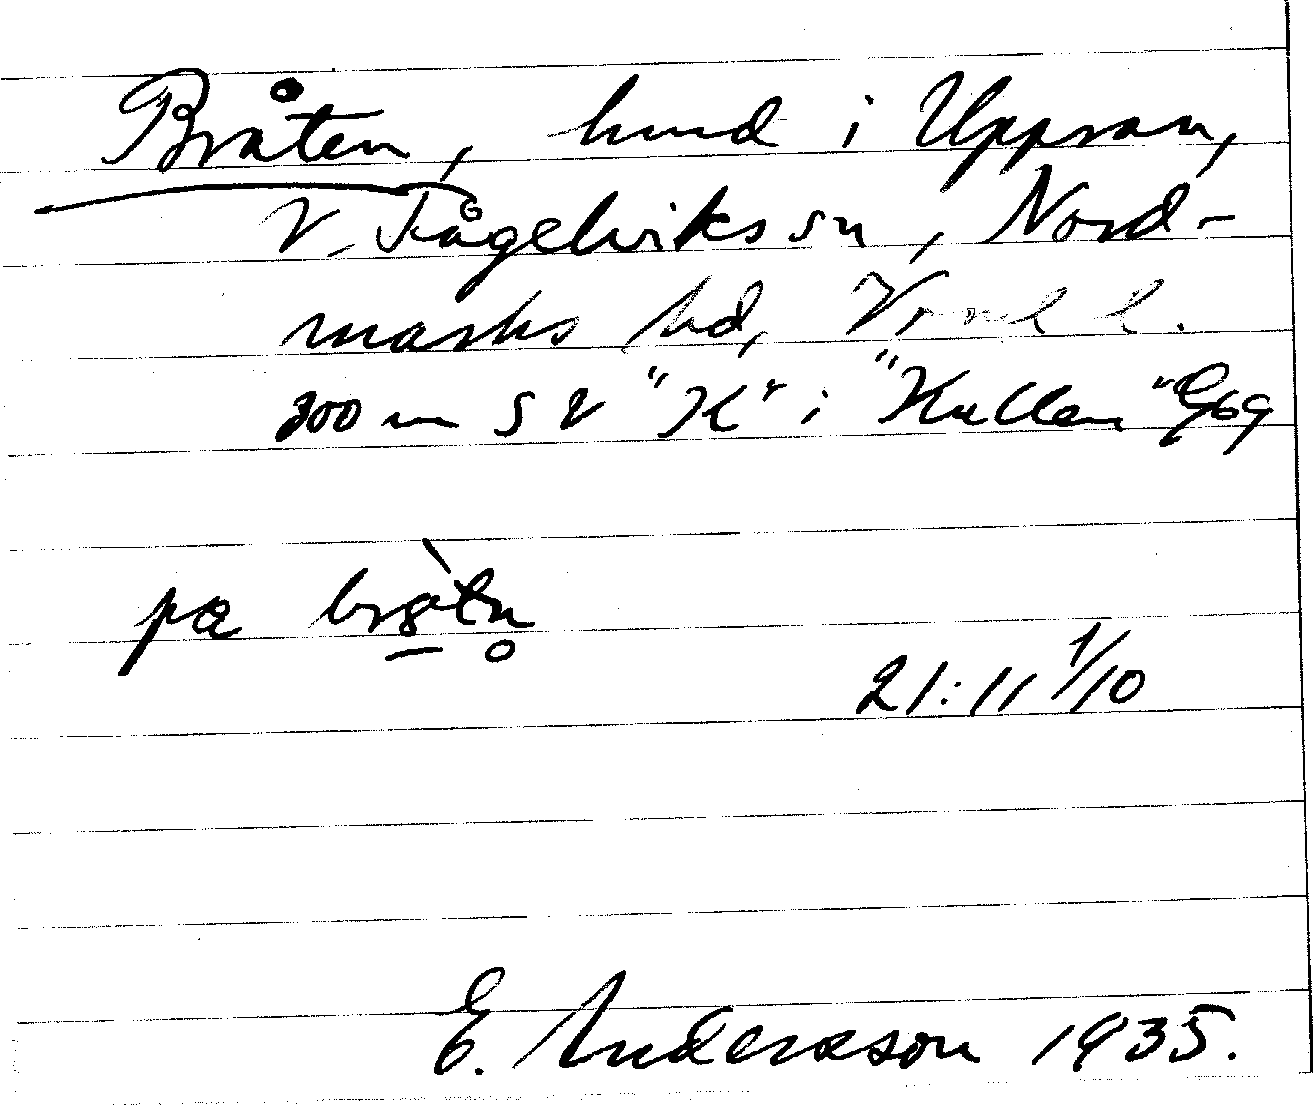 Bråten, hmd i Uppsan,
V. Fågelviks sn, Nord-
marks hd, Vrml l.
300 m SV "K" i "Kullen" Gbg
pa bråtn̥
21:11 1/10
E. Andersson 1935.